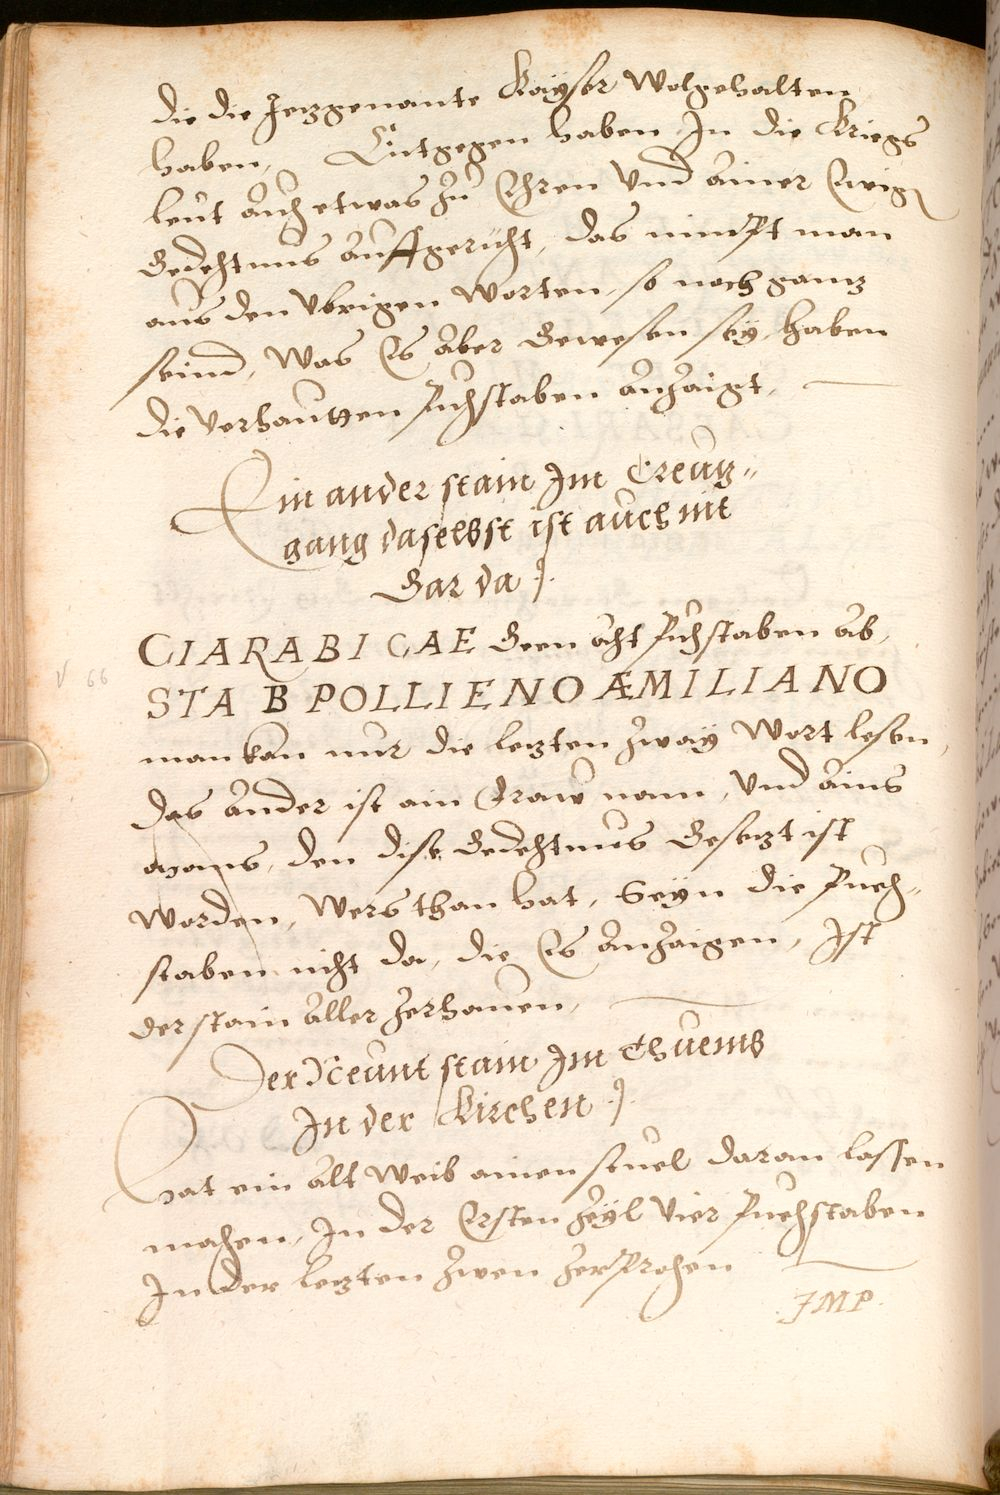 die die Jezgenante Kayser Wolgehalten
haben, Entgegen haben In die Kriegs
leut auch etwas zu Ehren Vnd ainer Ewig
Gedechtnus auffgericht, das nimpt man
aus den Vbrigen Worten, so noch ganz
seind, Was Es aber Gewesen sey, haben
die Verhautzen Puchstaben anzaigt,
Ein ander stain Im Creuz=
gang daselbst ist auch nit
Gar da
CIARABICAE Geen acht Puchstaben ab,
V 66
STA B POLLIENO ÆMILIANO
man kan nur die lezten zway Wort lesen,
das ander ist ain Fraw nam, Vnd ains
mans, den dise Gedechtnus Gesezt ist
Worden, Wers than hat, Seyn die Puch=
staben nicht da, die Es anzaigen, Ist
der stain aller zerhauen,
Der Neunt stain Im Thuems
In der Kirchen
Hat ein alt Weib ainen stuel daran lassen
machen, In der Ersten Zeyl Vier Puchstaben
In der lezten zwen zersprochen
IMP.